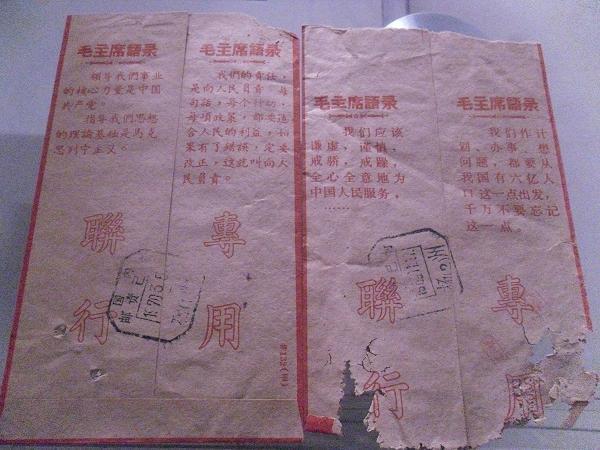 毛主席語录
領导我們事业
的核心力量是中国
共产党。
指导我們思想
的理論基础是馬克
思列宁主义。
毛主席語录
我們的責任,
是向人民負責。每
句話,每个行动,
每項政策,都要适
合人民的利益,
果有了錯誤,定要
改正,这就叫向人
民負責。
聯
行
專
用
国
邮資已
毛主席語录
我们应该
谦虚,谨慎,
戒骄,戒躁,
全心全意地为
中国人民服务,
……
毛主席語录
我们作计
划、办事、想
问题,都要从
我国有六亿人
口这一点出发,
千万不要忘记
这一点。
聯
行
專
用